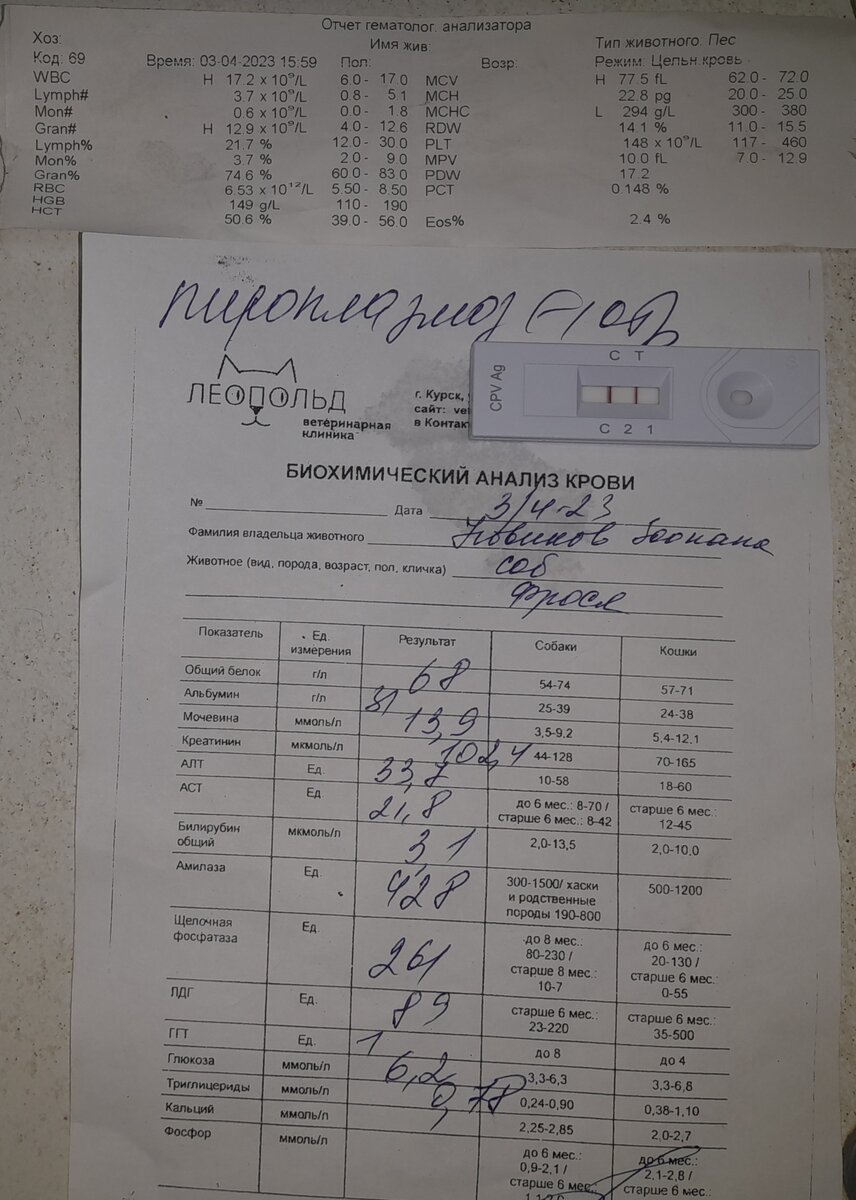 Отчет гематолог. анализатора
Хоз: Имя жив: Тип животного: Пес
Код: 69 Время: 03-04-2023 15:59 Пол: Возр: Режим: Цельн.кровь
WBC H 17.2 x 10⁹/L 6.0- 17.0 MCV H 77.5 fL 62.0- 72.0
Lymph# 3.7 x 10⁹/L 0.8- 5.1 MCH 22.8 pg 20.0- 25.0
Mon# 0.6 x 10⁹/L 0.0- 1.8 MCHC L 294 g/L 300- 380
Gran# H 12.9 x 10⁹/L 4.0- 12.6 RDW 14.1 % 11.0- 15.5
Lymph% 21.7 % 12.0- 30.0 PLT 148 x 10⁹/L 117- 460
Mon% 3.7 % 2.0- 9.0 MPV 10.0 fL 7.0- 12.9
Gran% 74.6 % 60.0- 83.0 PDW 17.2
RBC 6.53 x 10¹²/L 5.50- 8.50 PCT 0.148 %
HGB 149 g/L 110- 190
HCT 50.6 % 39.0- 56.0 Eos% 2.4 %
пироплазмоз (-) отр
C T
CPV Ag
C 2 1
ЛЕОПОЛЬД
ветеринарная
клиника
г. Курск,
сайт:
в Контак
БИОХИМИЧЕСКИЙ АНАЛИЗ КРОВИ
№ Дата 3/4-23
Фамилия владельца животного Новиков
Животное (вид, порода, возраст, пол, кличка) соб
Фрося
Показатель Ед. измерения Результат Собаки Кошки
Общий белок г/л 68 54-74 57-71
Альбумин г/л 31 25-39 24-38
Мочевина ммоль/л 13,9 3,5-9,2 5,4-12,1
Креатинин мкмоль/л 102,4 44-128 70-165
АЛТ Ед. 33,7 10-58 18-60
АСТ Ед. 21,8 до 6 мес.: 8-70 / старше 6 мес.: 8-42 старше 6 мес.: 12-45
Билирубин общий мкмоль/л 3,1 2,0-13,5 2,0-10,0
Амилаза Ед. 428 300-1500/ хаски и родственные породы 190-800 500-1200
Щелочная фосфатаза Ед. 261 до 8 мес.: 80-230 / старше 8 мес.: 10-7 до 6 мес.: 20-130 / старше 6 мес.: 0-55
ЛДГ Ед. 89 старше 6 мес.: 23-220 старше 6 мес.: 35-500
ГГТ Ед. 1 до 8 до 4
Глюкоза ммоль/л 6,2 3,3-6,3 3,3-6,8
Триглицериды ммоль/л 0,78 0,24-0,90 0,38-1,10
Кальций ммоль/л 2,25-2,85 2,0-2,7
Фосфор ммоль/л до 6 мес.: 0,9-2,1 / старше 6 мес. до 6 мес.: 2,1-2,8 / старше 6 мес.